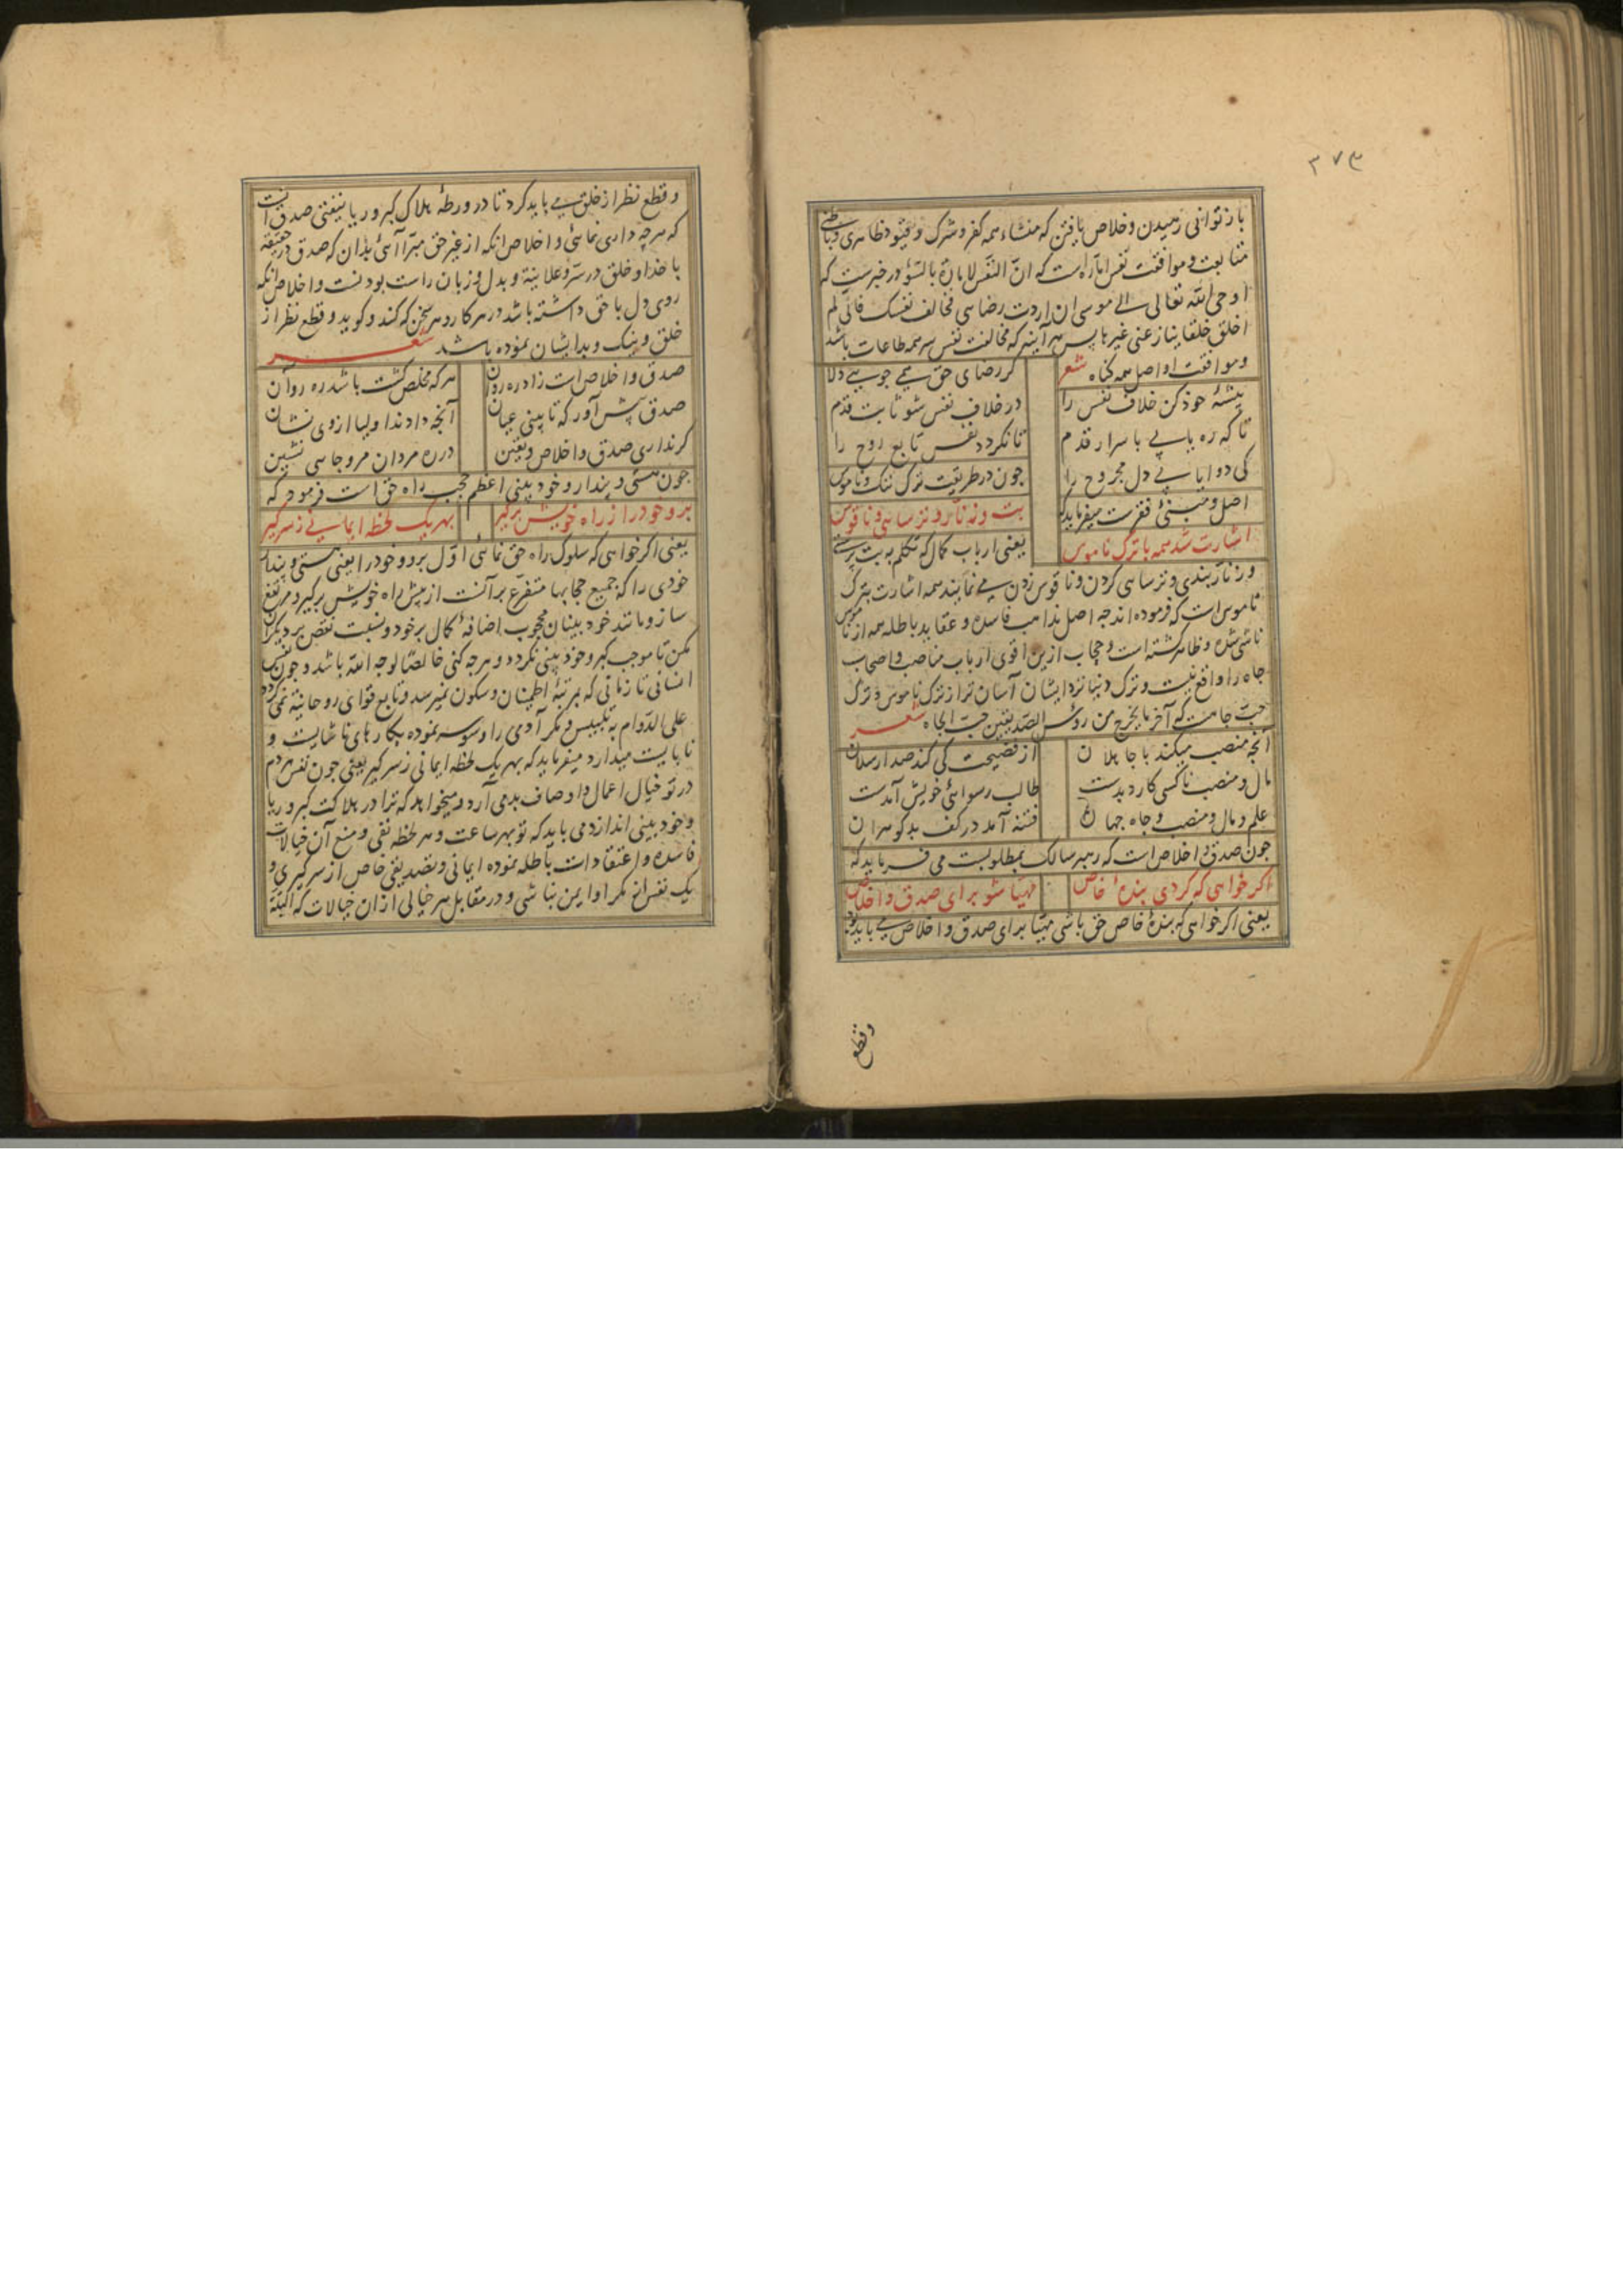 ۳۷۳
باز توانی رسیدن و خلاص یافتن که منشاء همه کفر و شرک و قیود ظاهری و باطنی
متابعت و موافقت نفس اماره است که انّ النفس لامارة بالسّوء و در خبرست که
اوحی الله تعالی الی موسی ان اردت رضایی فخالف نفسک فانی لم
اخلق خلقا ینازعنی غیرها پس هر آینه که مخالفت نفس سر همه طاعات باشد
و موافقت او اصل همه کناه شعر
کر رضای حق همی جویی دلا
پیشهٔ خود کن خلاف نفس را
در خلاف نفس شو ثابت قدم
تا که ره یابی باسرار قدم
تا نکردد نفس تابع روح را
کی دوا یابی دل مجروح را
چون در طریقت ترک ننک و ناموس
اصل و مبنیٔ فقرست میفرماید که
بت و زنار و ترسایی و ناقوس
اشارت شد همه با ترک ناموس
یعنی ارباب کمال که تکلم به بت پرستی
و زنار بندی و ترسایی کردن و ناقوس زدن می نمایند همه اشارت بترک
ناموس است که فرموده اند چه اصل مذاهب فاسده و عقاید باطله همه از ناموس
ناشی شده و ظاهر کشته است و حجاب ازین اقوی ارباب مناصب و اصحاب
جاه را واقع نیست و ترک دنیا نزد ایشان آسان تر از ترک ناموس و ترک
حبّ جاهست که آخر ما یخرج من رؤس الصدیقین حبّ الجاه شعر
آنچه منصب میکند با جاهلان
از فضیحت کی کند صد ارسلان
مال و منصب ناکسی کارد بدست
طالب رسوائی خویش آمدست
علم و مال و منصب و جاه جهان
فتنه آمد در کف بدکوهران
چون صدق و اخلاص است که رهبر سالک بمطلوبست می فرماید که
اکر خواهی که کردی بندهٔ خاص
مهیّا شو برای صدق و اخلاص
یعنی اکر خواهی که بندهٔ خاص حق باشی مهیّا برای صدق و اخلاص می باید بود
وقطع
و قطع نظر از خلق می باید کرد تا در ورطهٔ هلاک کبر و ریا نیفتی صدق آنست
که هر چه داری نمائی و اخلاص انکه از غیر حق مبرّا آئی بدان که صدق در حقیقه
با خدا و خلق در سرّ و علانیة و بدل و زبان راست بودنست و اخلاص آنکه
روی دل با حق داشته باشد در هر کار و هر سخن که کند و کوید و قطع نظر از
خلق و نیک و بد ایشان نموده باشد شعر
صدق و اخلاص است زاد ره روان
هر که مخلص کشت باشد ره روان
صدق پیش آور که تا بینی عیان
آنچه دادند اولیا از وی نشان
کر نداری صدق و اخلاص و یقین
در ره مردان مرو جایی نشین
چون هستی و پندار و خود بینی اعظم حجب راه حق است فرمود که
برو خود را ز راه خویش برکیر
بهر یک لحظه ایمانی ز سر کیر
یعنی اکر خواهی که سلوک راه حق نمائی اوّل برو و خود را یعنی هستی و پندار
خودی را که جمیع حجابها متفرّع بر آنست از پیش راه خویش برکیر و مرتفع
ساز و مانند خود بینان محجوب اضافهٔ کمال بر خود و نسبت نقص بر دیکران
مکن تا موجب کبر و خود بینی نکردد و هر چه کنی خالصًا لوجه الله باشد و چون نفس
انسانی تا زمانی که بمرتبهٔ اطمینان و سکون نمیرسد و تابع قوای روحانیة نمی کردد
علی الدّوام به تلبیس و مکر آدمی را وسوسه نموده بکارهای ناشایست و
نابایست میدارد میفرماید که بهر یک لحظه ایمانی ز سر کیر یعنی چون نفس هر دم
در تو خیال اعمال و اوصاف بد می آرد و میخواهد که ترا در هلاکت کبر و ریا
و خود بینی اندازد می باید که تو بهر ساعت و هر لحظه نفی و منع آن خیالات
فاسده و اعتقادات باطله نموده ایمانی و تصدیقی خاص از سر کیری و
یک نفس از مکر او ایمن نباشی و در مقابل هر خیالی از ان خیالات که البتّه